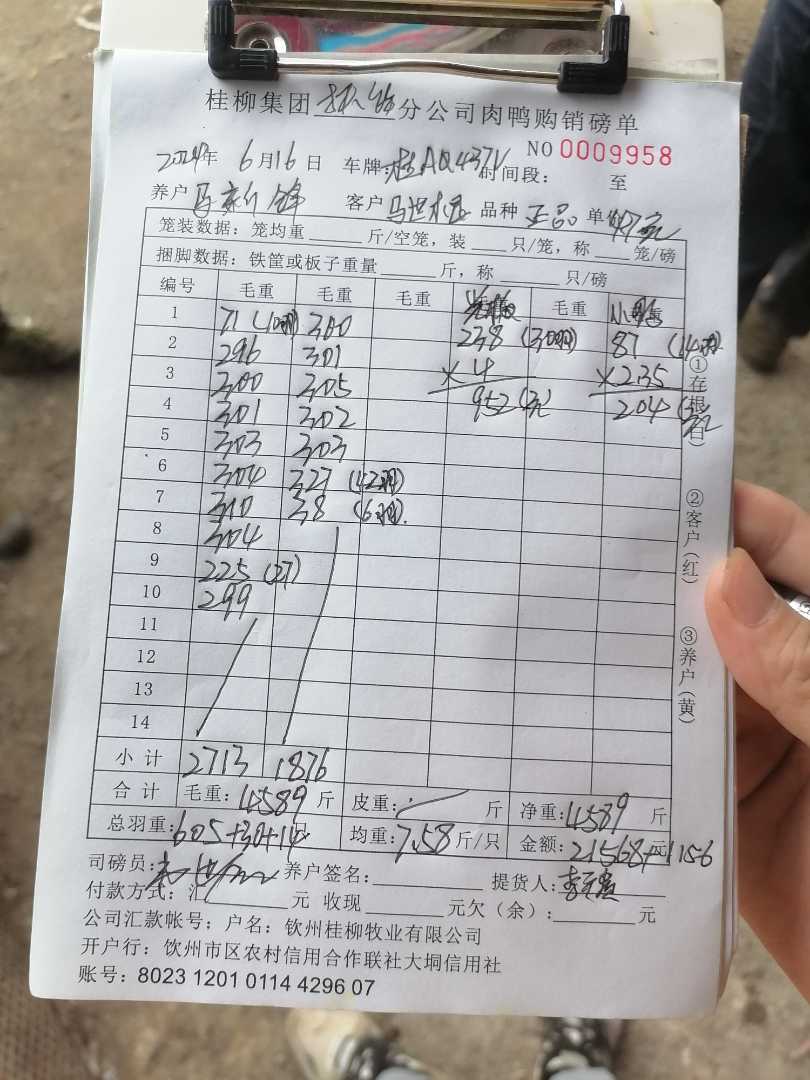 桂柳集团 分公司肉鸭购销磅单
NO 0009958
2024年 6月16日 车牌:桂AQ437V 时间段: 至
养户 客户 品种 正品 单价 4.7元
笼装数据: 笼均重 斤/空笼, 装 只/笼, 称 笼/磅
捆脚数据: 铁筐或板子重量 斤, 称 只/磅
编号 毛重 毛重 毛重 毛重 毛重
1 71 (10羽) 300 238 (30羽) 87 (14羽)
2 296 301 ×4 ×2.35
3 300 305 952元 204元
4 301 302
5 303 303
6 304 327 (42羽)
7 310 38 (6羽)
8 304
9 225 (27)
10 299
11
12
13
14
小计 2713 1876
合计 毛重:4589斤 皮重: 斤 净重:4589斤
总羽重:605+30+14 均重:7.58斤/只 金额:21568+1156元
司磅员: 养户签名: 提货人:
付款方式:汇 元 收现 元欠(余): 元
公司汇款帐号; 户名: 钦州桂柳牧业有限公司
开户行: 钦州市区农村信用合作联社大垌信用社
账号: 8023 1201 0114 4296 07
①存根(白)
②客户(红)
③养户(黄)